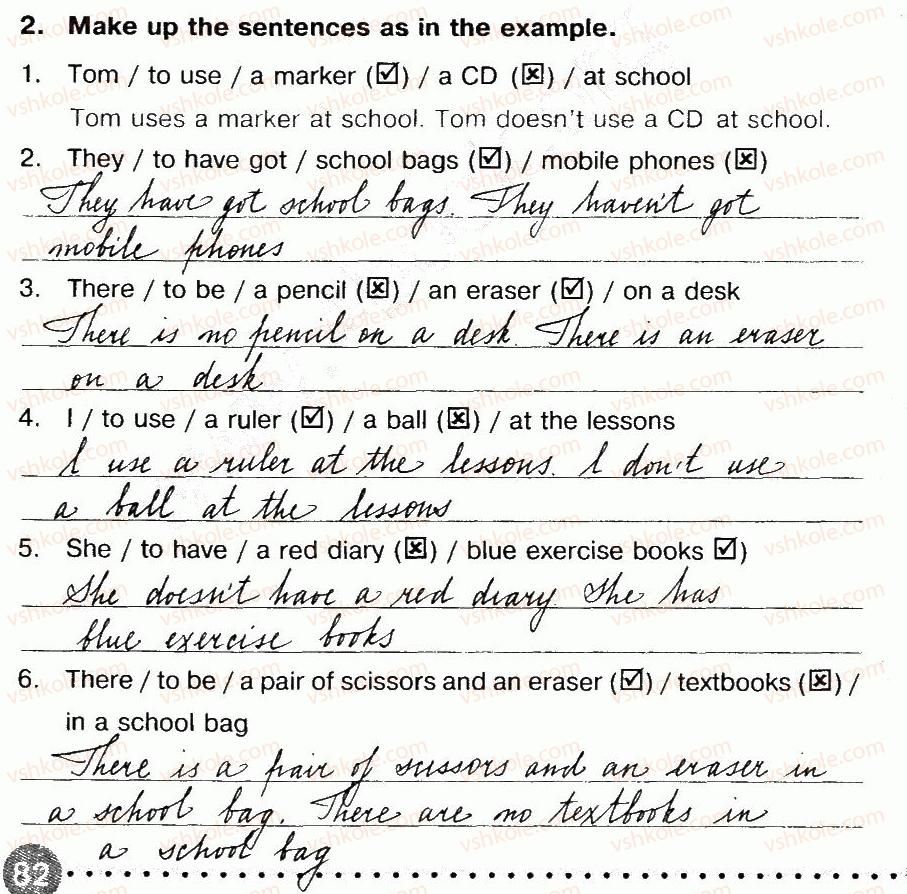 2. Make up the sentences as in the example.
1. Tom / to use / a marker (☑) / a CD (☒) / at school
Tom uses a marker at school. Tom doesn't use a CD at school.
2. They / to have got / school bags (☑) / mobile phones (☒)
They have got school bags. They haven't got
mobile phones
3. There / to be / a pencil (☒) / an eraser (☑) / on a desk
There is no pencil on a desk. There is an eraser
on a desk
4. I / to use / a ruler (☑) / a ball (☒) / at the lessons
I use a ruler at the lessons. I don't use
a ball at the lessons
5. She / to have / a red diary (☒) / blue exercise books ☑)
She doesn't have a red diary. She has
blue exercise books
6. There / to be / a pair of scissors and an eraser (☑) / textbooks (☒) /
in a school bag
There is a pair of scissors and an eraser in
a school bag. There are no textbooks in
a school bag
82
vshkole.com